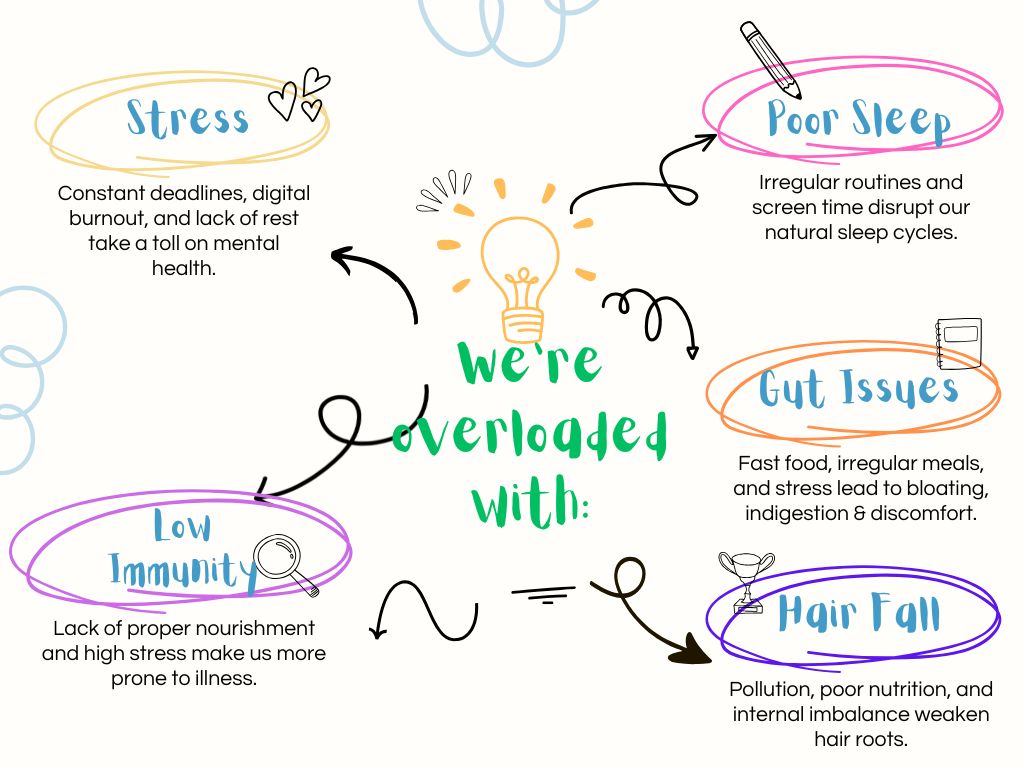 Stress
Constant deadlines, digital
burnout, and lack of rest
take a toll on mental
health.
Poor Sleep
Irregular routines and
screen time disrupt our
natural sleep cycles.
We're
overloaded
with:
Gut Issues
Fast food, irregular meals,
and stress lead to bloating,
indigestion & discomfort.
Low
Immunity
Lack of proper nourishment
and high stress make us more
prone to illness.
Hair Fall
Pollution, poor nutrition, and
internal imbalance weaken
hair roots.